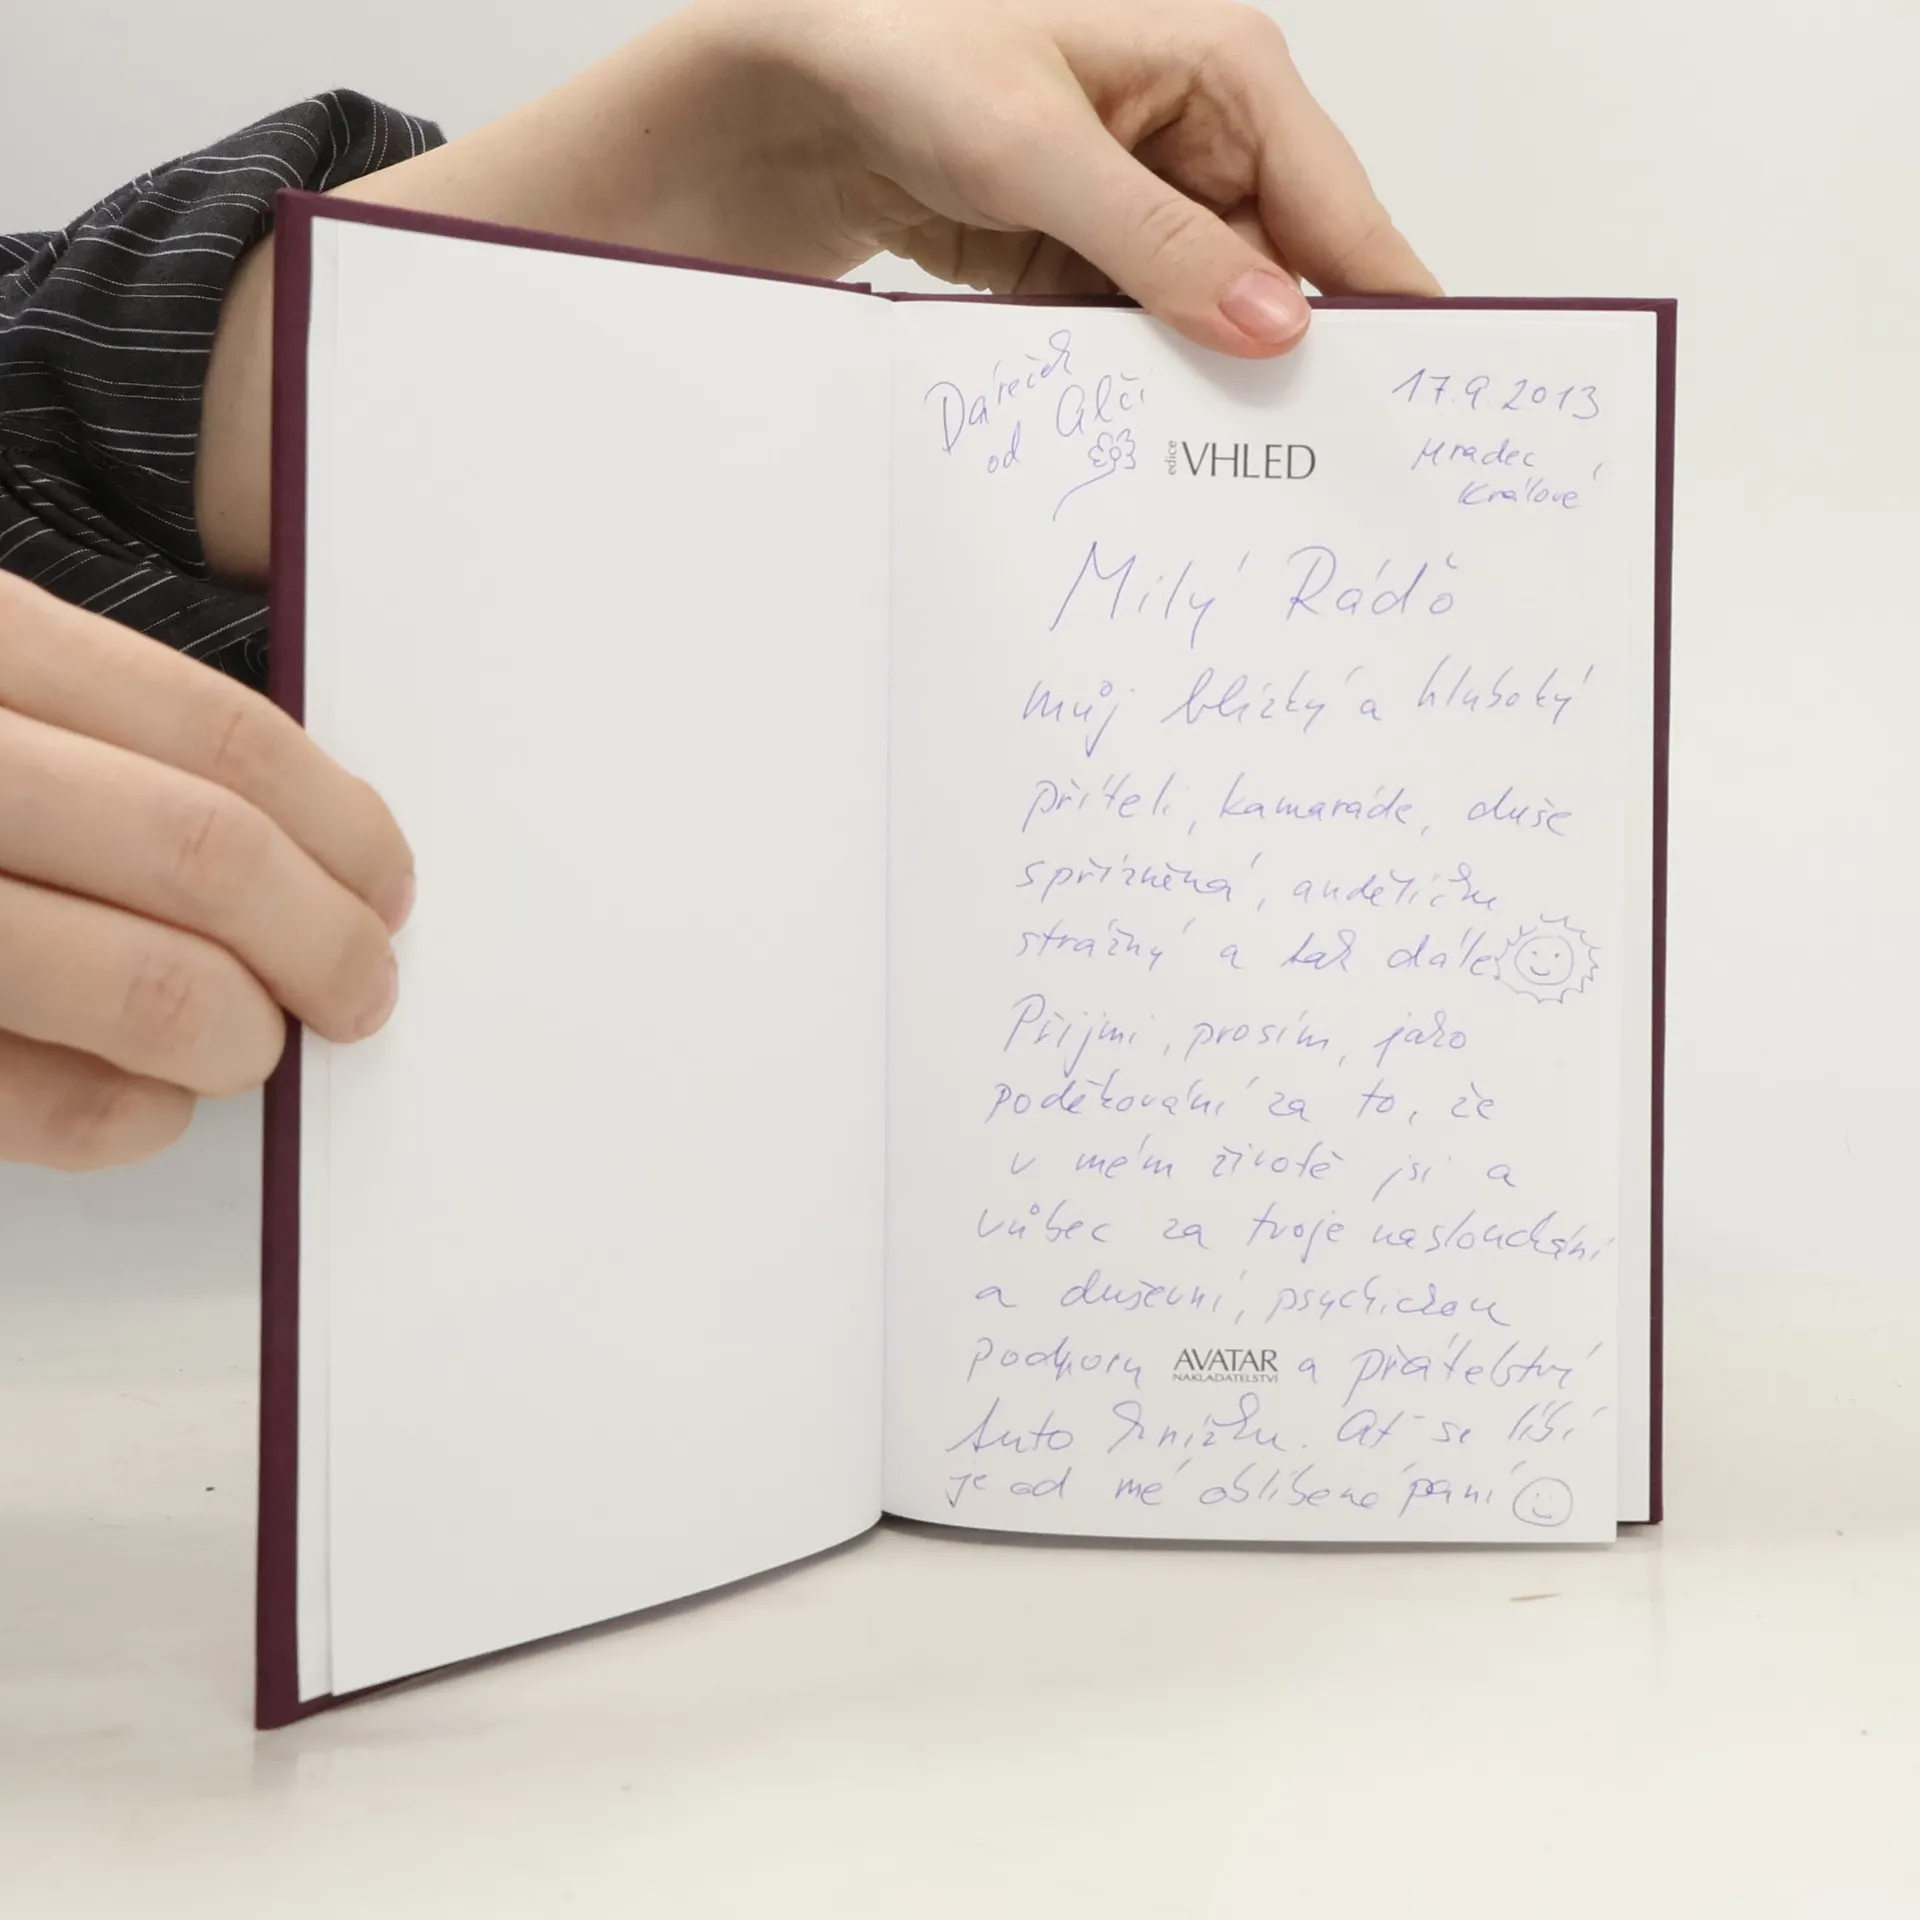 Dáreček
od Alči
17.9.2013
Hradec
Králové
edice VHLED
Milý Ráďo
můj blízký a hluboký
příteli, kamaráde, duše
spřízněná, andělíčku
strážný a tak dále
Přijmi, prosím, jako
poděkování za to, že
v mém životě jsi a
vůbec za tvoje naslouchání
a duševní, psychickou
podporu a přátelství
AVATAR
NAKLADATELSTVÍ
tuto knížku. Ať se líbí
je od mé oblíbené paní